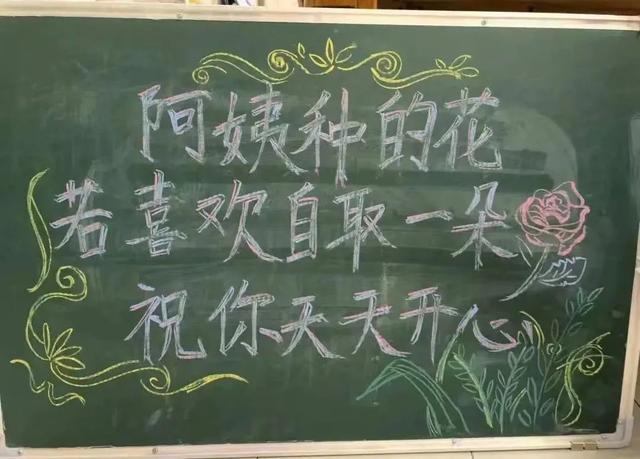 阿姨种的花
若喜欢自取一朵
祝你天天开心